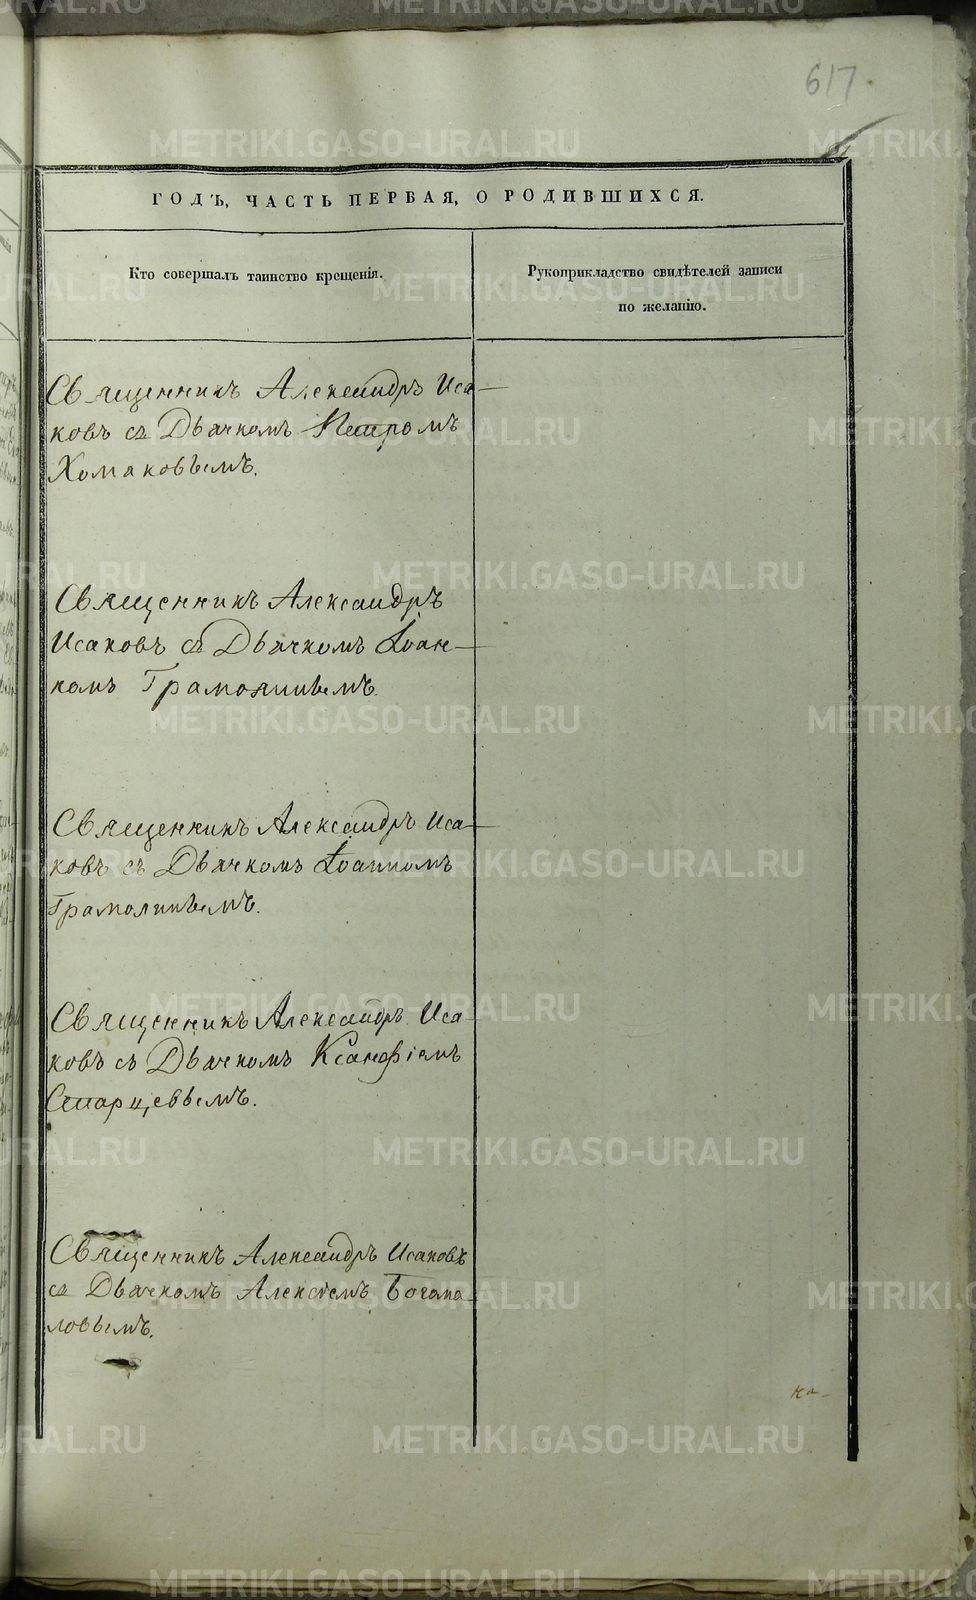 617.
ГОДЪ, ЧАСТЬ ПЕРВАЯ, О РОДИВШИХСЯ.
Кто совершалъ таинство крещенія.
Рукоприкладство свидѣтелей записи
по желанію.
Священникъ Александръ Иса-
ковъ съ Дьячкомъ Петромъ
Хомаковымъ.
Священникъ Александръ
Исаковъ съ Дьячкомъ Іоан-
номъ Грамолинымъ
Священникъ Александръ Иса-
ковъ съ Дьячкомъ Іоанномъ
Грамолинымъ.
Священникъ Александръ Иса-
ковъ съ Дьячкомъ Ксанфіемъ
Старцевымъ.
Священникъ Александръ Исаковъ
съ Дьячкомъ Алексіемъ
ловымъ.
на-
METRIKI.GASO-URAL.RU